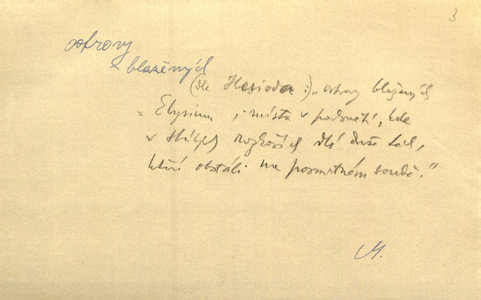 3
ostrovy
blažených
(dle Hesioda:) „ostrovy blažených
= Elysium, místa v podsvětí, kde
v stálých rozkoších dlí duše těch,
kteří obstáli na posmrtném soudě.“
M.